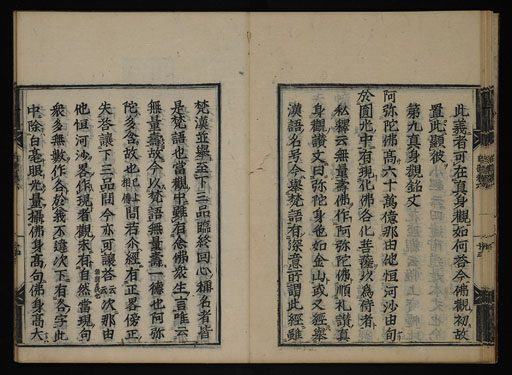 此義者可在真身觀如何答今佛觀初故
置此觀彼
第九真身觀銘文
阿弥陀佛高六十萬億那由他恒河沙由旬
於圓光中有現化佛各化菩薩以為侍者
私釋云無量壽佛作阿弥陀佛順礼讃真
身觀讃文曰弥陀身色如金山或又經舉
漢語名号今舉梵語有深意所謂此經雖
梵漢並舉至下三品臨終回心稱名者皆
是梵語也當觀中雖有念佛衆生言唯云
無量壽故今以梵語無量壽一德也何弥
陀多含故也
問若尒經有正旁傍正
失答讓下三品問今亦可讓答云云次那由
他恒河沙畧作現者觀末有自然當現句
衆多無數作各於義不違次下有各字此
中除白毫眼光量攝佛身高句佛身高大